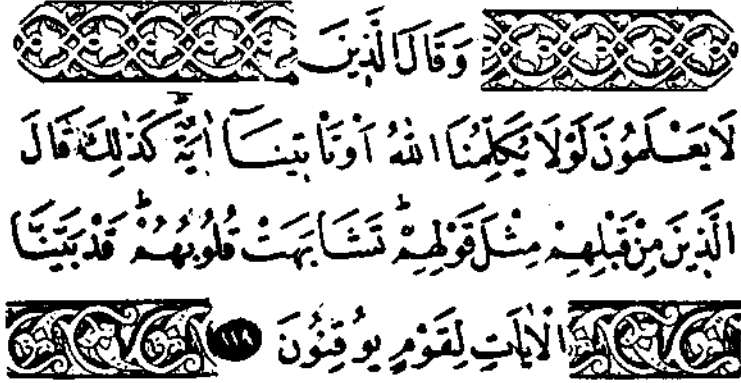 وَقَالَ الَّذِينَ
لَا يَعْلَمُونَ لَوْلَا يُكَلِّمُنَا اللّٰهُ اَوْ تَأْتِينَٓا اٰيَةٌۜ كَذٰلِكَ قَالَ
الَّذِينَ مِنْ قَبْلِهِمْ مِثْلَ قَوْلِهِمْۜ تَشَابَهَتْ قُلُوبُهُمْۜ قَدْ بَيَّنَّا
الْاٰيَاتِ لِقَوْمٍ يُوقِنُونَ ﴿١١٩﴾